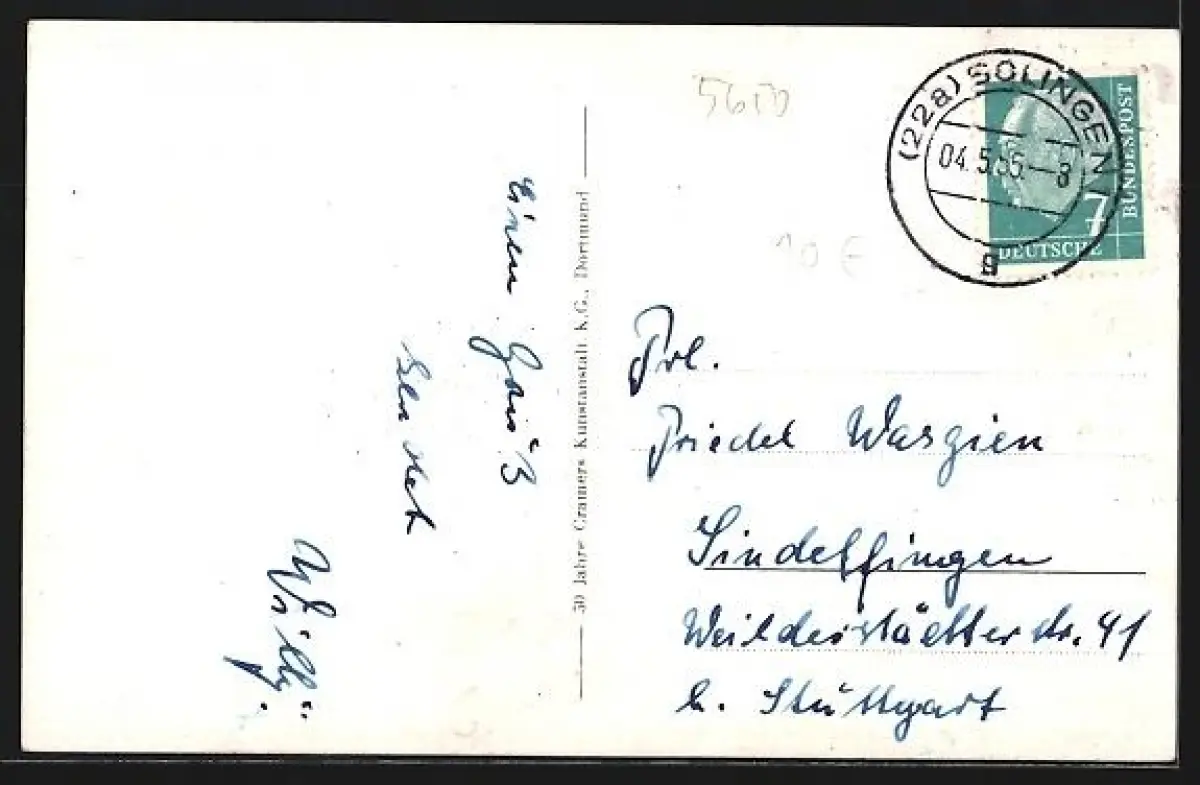 5650
(22a) SOLINGEN
04.5.55.-8
g
BUNDESPOST
7
DEUTSCHE
10 €
Einen Gruß
sendet
Willy.
50 Jahre Cramers Kunstanstalt K.G., Dortmund
Frl.
Friedel Waszien
Sindelfingen
Weilderstädter Str. 41
b. Stuttgart